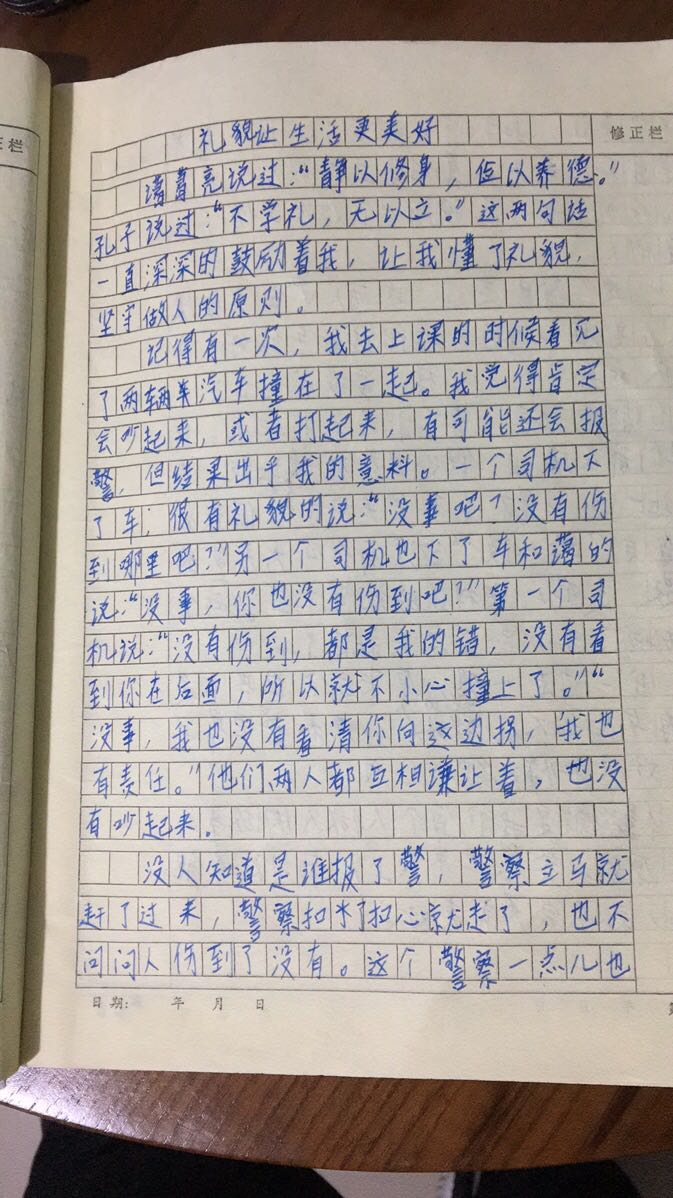 正栏
修正栏
礼貌让生活更美好
诸葛亮说过:“静以修身,俭以养德。”
孔子说过:“不学礼,无以立。”这两句话
一直深深的鼓励着我,让我懂了礼貌,
坚牢做人的原则。
记得有一次,我去上课的时候看见
了两辆汽车撞在了一起。我觉得肯定
会吵起来,或者打起来,有可能还会报
警,但结果出乎我的意料。一个司机下
了车,很有礼貌的说:“没事吧?没有伤
到哪里吧?”另一个司机也下了车和蔼的
说:“没事,你也没有伤到吧?”第一个司
机说:“没有伤到,都是我的错,没有看
到你在后面,所以就不小心撞上了。”“
没事,我也没有看清你向这边拐,我也
有责任。”他们两人都互相谦让着,也没
有吵起来.
没人知道是谁报了警,警察立马就
赶了过来,警察扣了扣心就走了,也不
问问人伤到了没有。这个警察一点儿也
日期: 年 月 日
第